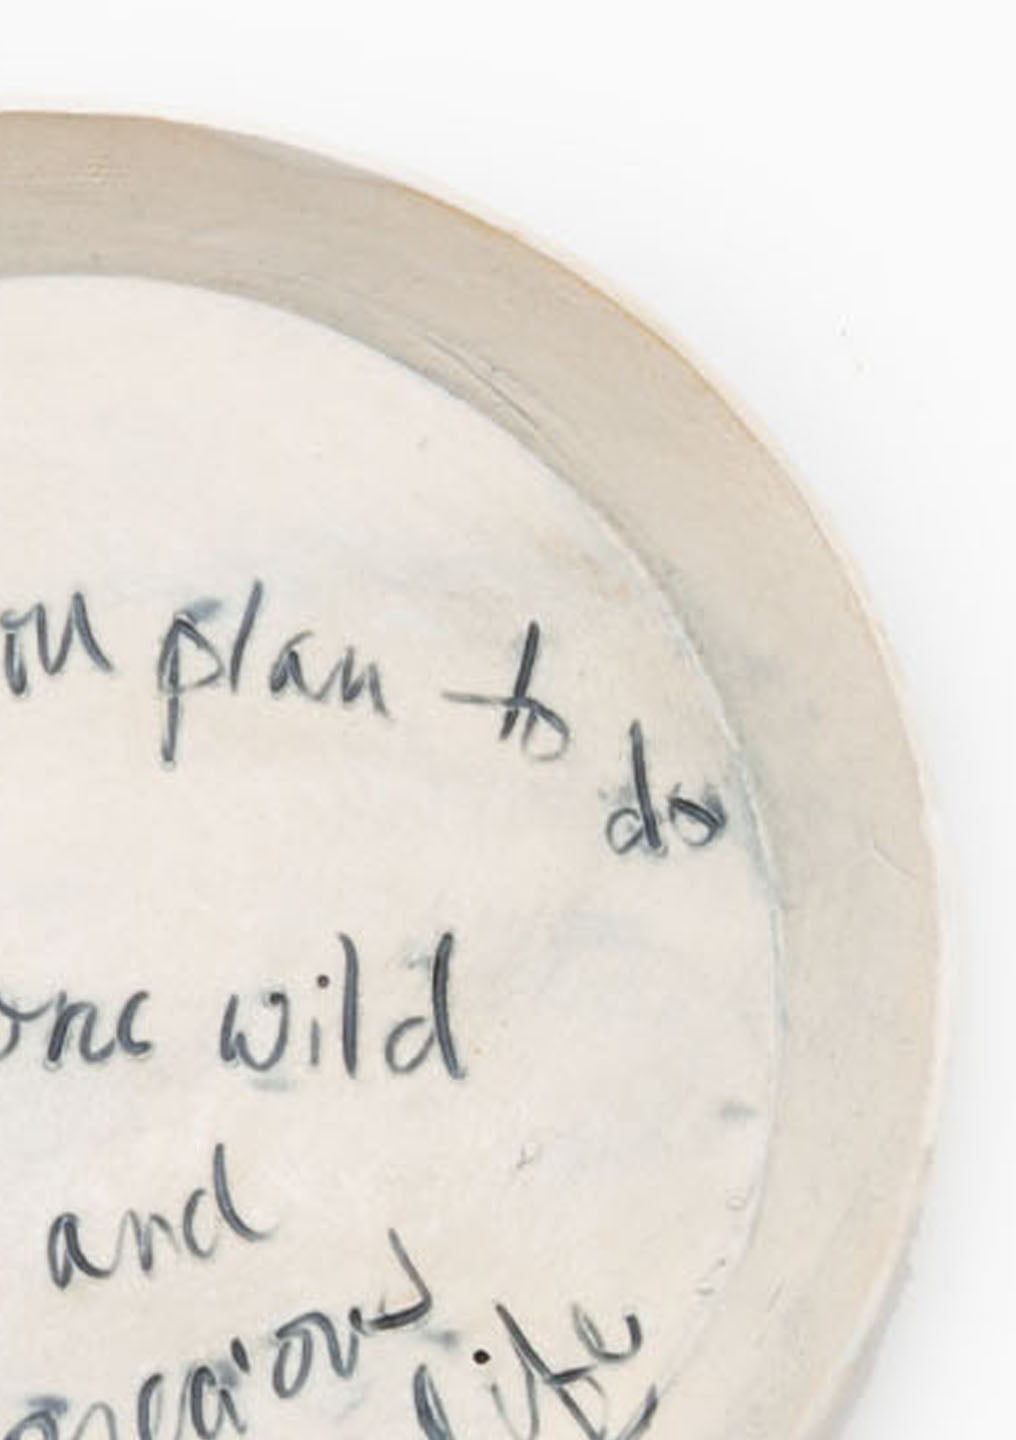 ou plan to
do
one wild
and
precious
life